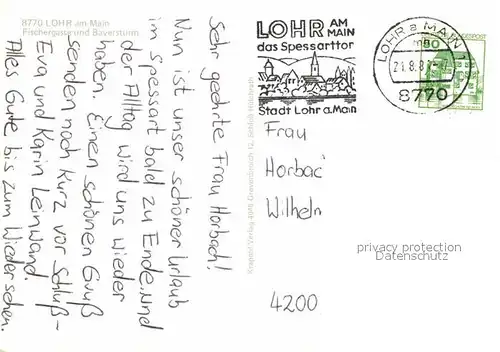 8770 LOHR am Main
Fischergasse und Bayersturm
Sehr geehrte Frau Horbach!
Nun ist unser schöner Urlaub
im Spessart bald zu Ende, und
der Alltag wird uns wieder
haben. Einen schönen Gruß
senden noch kurz vor Schluß –
Eva und Karin Leinwand.
Alles Gute bis zum Wiedersehen.
Krapohl Verlag 4048 Grevenbroich 12, Schloß Hülchrath
LOHR AM MAIN
das Spessarttor
Stadt Lohr a.Main
LOHR a MAIN 1
21.8.8
8770
Frau
Horbac
Wilheln
4200
privacy protection
Dematic